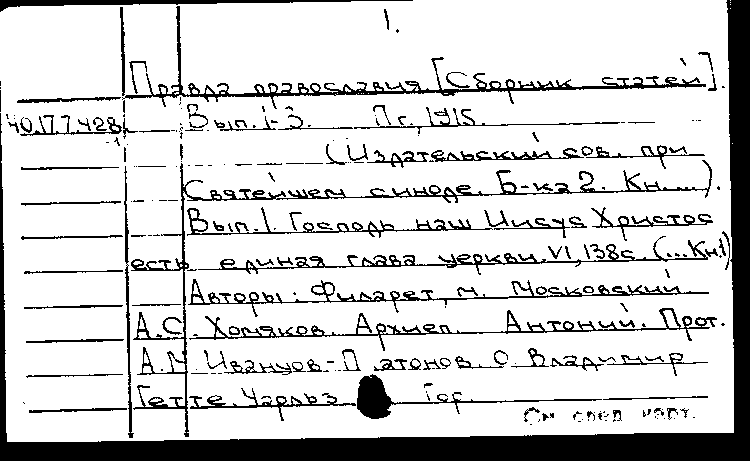 1.
Правда православия. [Сборник статей].
40.17.7.428. Вып. 1-3. Пг., 1915.
(Издательский сов. при
Святейшем синоде. Б-ка 2. Кн. ...).
Вып. 1. Господь наш Иисус Христос
есть единая глава церкви. VI, 138с. (...Кн.1)
Авторы: Филарет, м. Московский.
А.С. Хомяков. Архиеп. Антоний. Прот.
А.М. Иванцов-Платонов. О. Владимир
Гетте. Чарльз Гор.
См след карт.